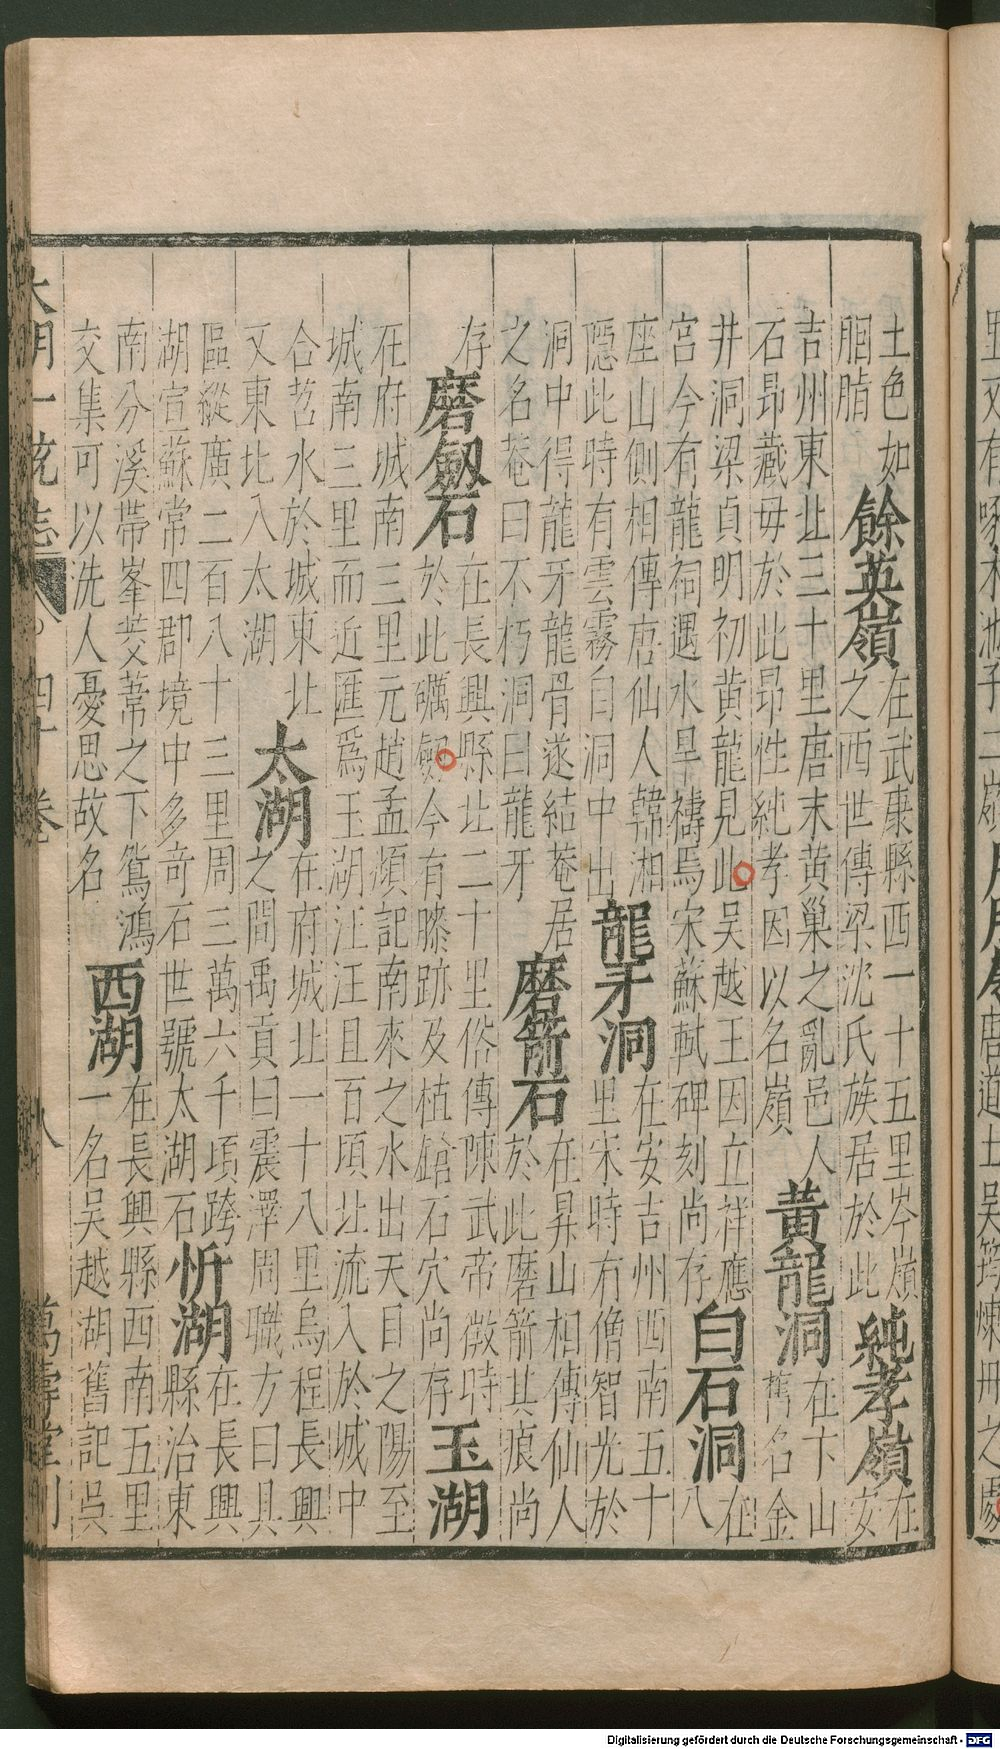 土色如
胭脂
餘英嶺
在武康縣西一十五里岑嶺
之西世傳梁沈氏族居於此
純孝嶺
在
安
吉州東北三十里唐末黃巢之亂邑人
石昂藏毋於此昂性純孝因以名嶺
黃龍洞
在卞山
舊名金
井洞梁貞明初黃龍見此吳越王因立祥應
宮今有龍祠遇水旱禱焉宋蘇軾碑刻尚存
白石洞
在
八
座山側相傳唐仙人韓湘
隱此時有雲霧自洞中出
龍牙洞
在安吉州西南五十
里宋時有僧智光於
洞中得龍牙龍骨遂結菴居
之名菴曰不朽洞曰龍牙
磨箭石
在昇山相傳仙人
於此磨箭其痕尚
存
磨劔石
在長興縣北二十里俗傳陳武帝微時
於此礪劔今有膝跡及植鎗石穴尚存
玉湖
在府城南三里元趙孟頫記南來之水出天目之陽至
城南三里而近匯爲玉湖汪汪且百頃北流入於城中
合苕水於城東北
又東北入太湖
太湖
在府城北一十八里烏程長興
之間禹貢曰震澤周職方曰具
區縱廣二百八十三里周三萬六千頃跨
湖宣蘇常四郡境中多奇石世號太湖石
忻湖
在長興
縣治東
南分溪帶峯茭葑之下鴛鴻
交集可以洗人憂思故名
西湖
在長興縣西南五里
一名吳越湖舊記吳
大明一統志 四十卷 八 萬壽堂刊
Digitalisierung gefördert durch die Deutsche Forschungsgemeinschaft - DFG